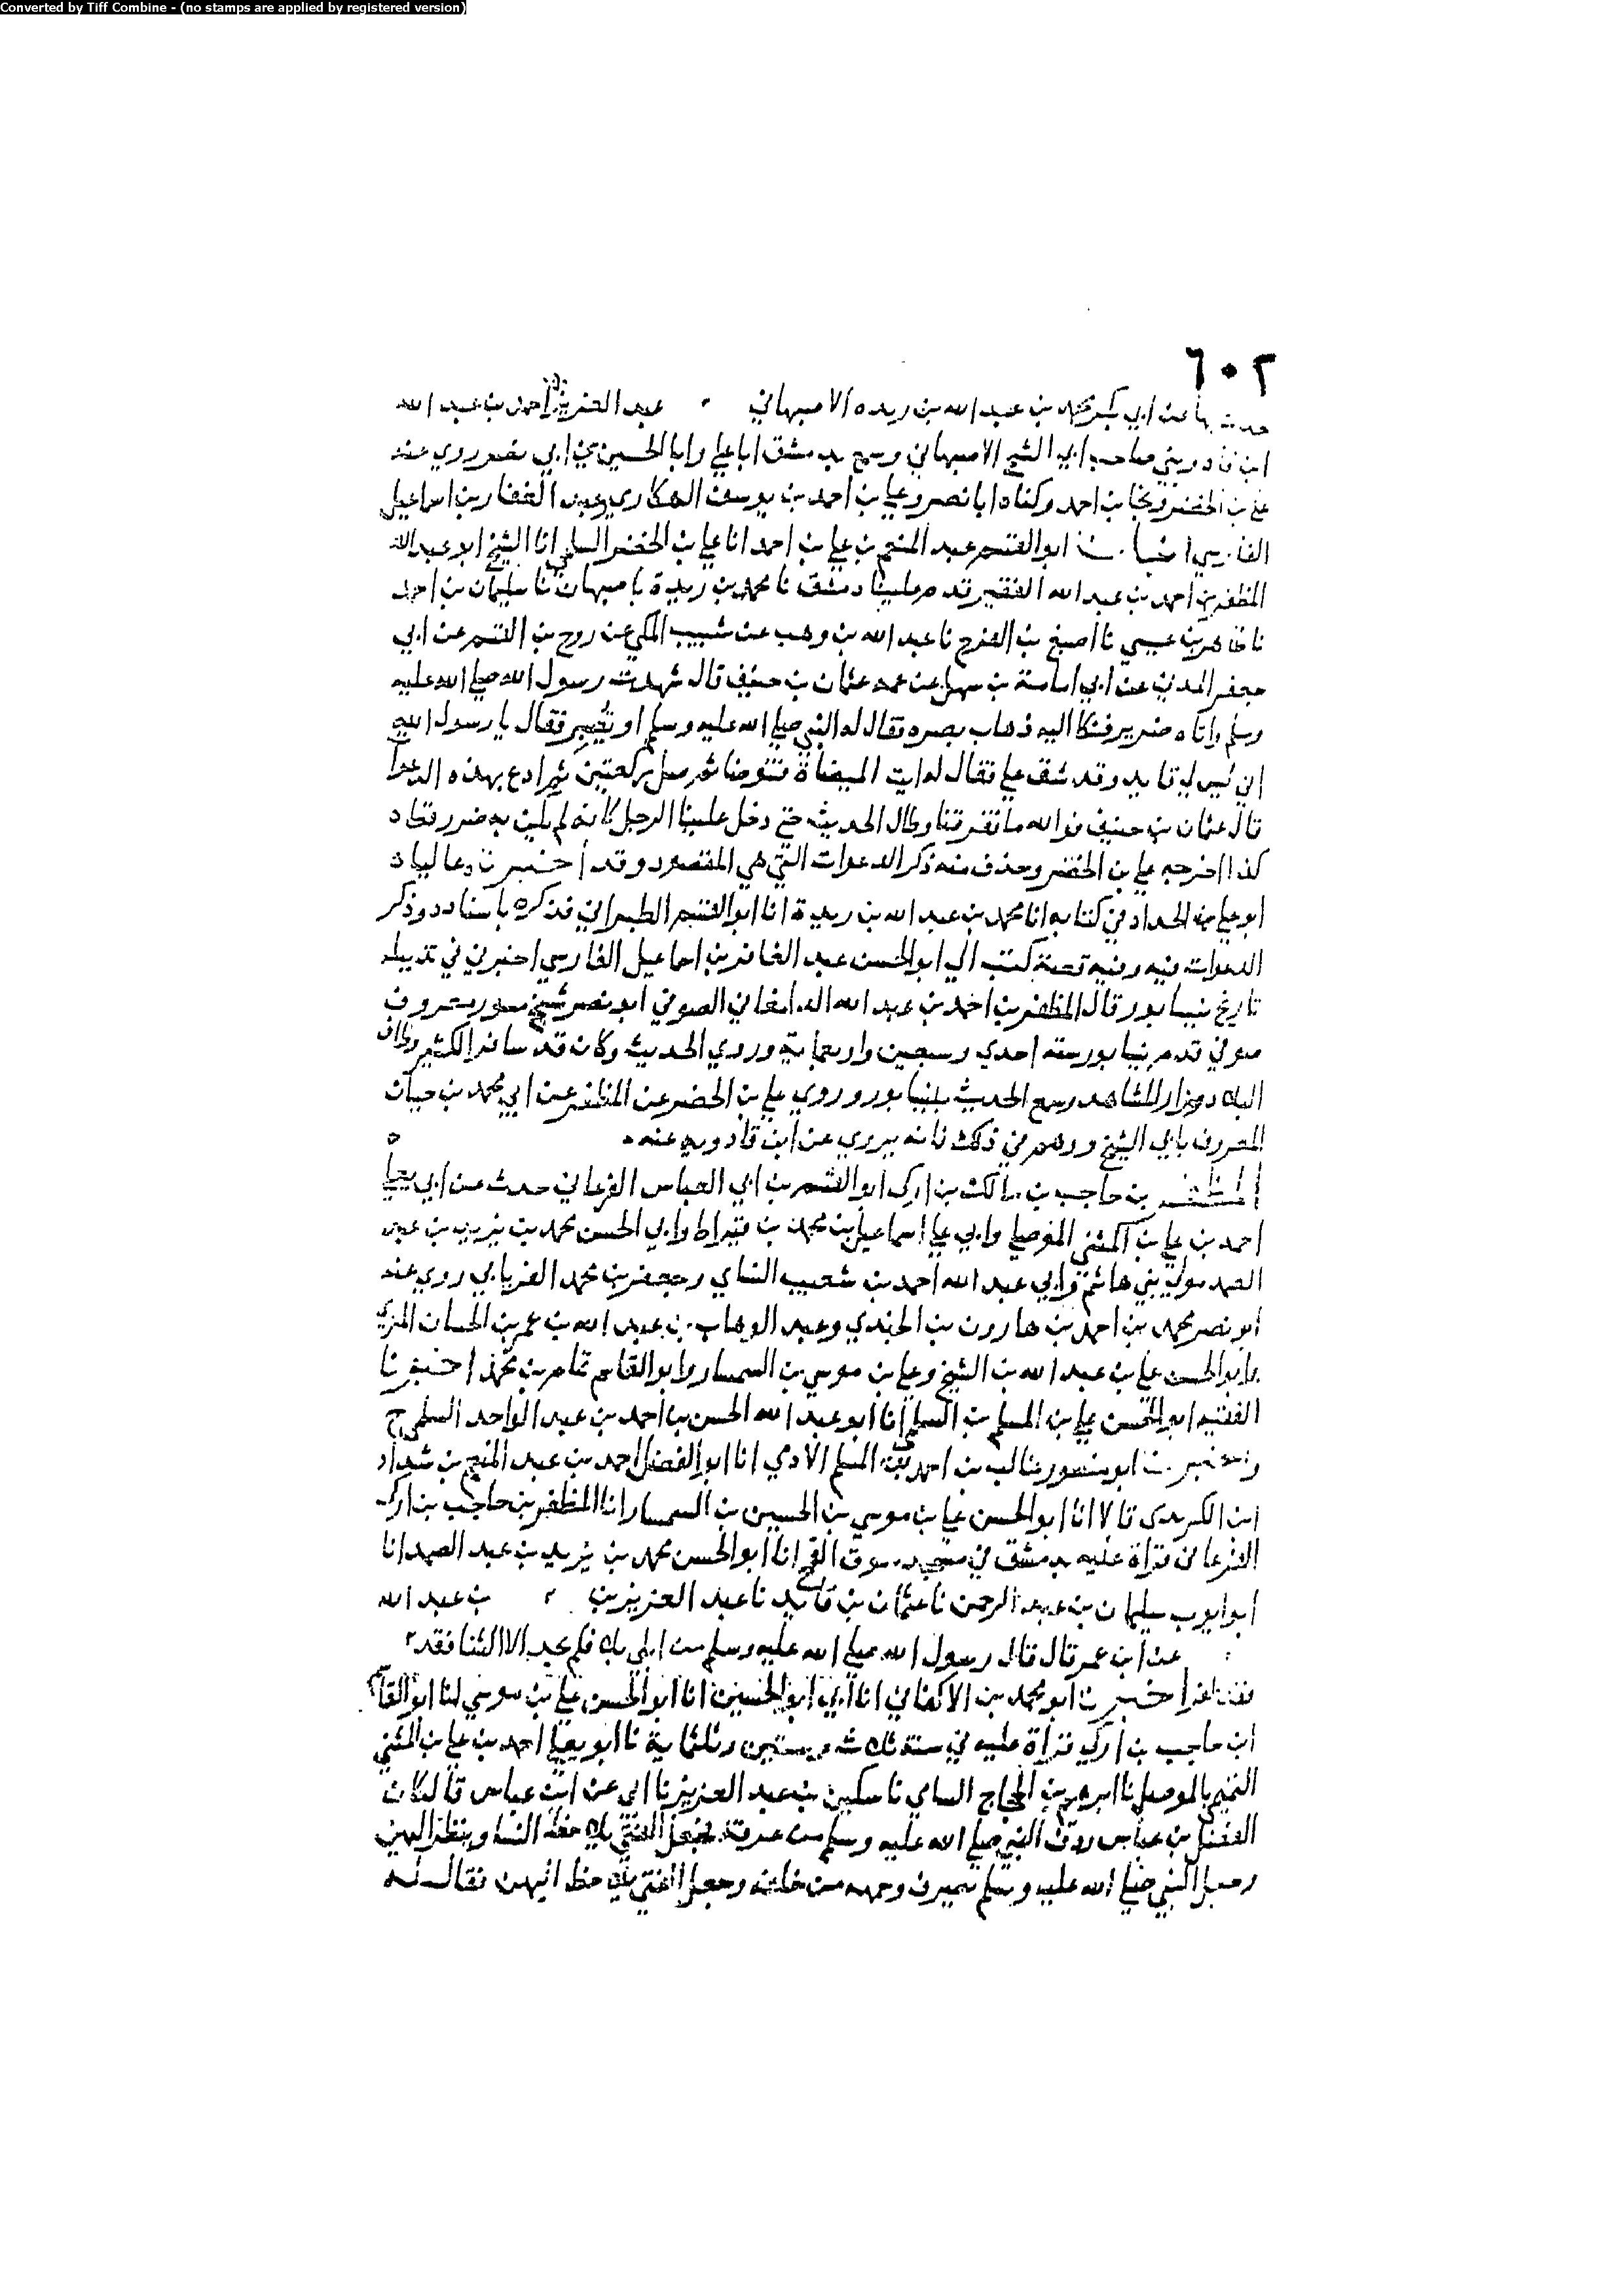 Converted by Tiff Combine - (no stamps are applied by registered version)
٦٠٢
حدث بها عن ابي بكر محمد بن عبد الله بن ريده الاصبهاني عبد العزيز بن احمد بن عبد الله
ابن فادويني صاحب ابي الشيخ الاصبهاني وسمع بدمشق ابا علي وابا الحسين بن ابي نصر روي عنه
علي بن الخضر ونجا بن احمد وكناه ابا نصر وعلي بن احمد بن يوسف الهكاري وعبد الغفار بن اسماعيل
الفارسي ابو الفتح عبد المنعم بن علي بن احمد انا علي بن الخضر السلمي انا الشيخ ابو عبد الله
المظفر بن احمد بن عبد الله الفقير قدم علينا دمشق نا محمد بن ريدة باصبهان نا سليمان بن احمد
نا طاهر بن عيسي نا اصبغ بن الفرج نا عبد الله بن وهب عن شبيب المكي عن روح بن القسم عن ابي
جعفر المدني عن ابي امامة بن سهل عن عمه عثمان بن حنيف قال شهدت رسول الله صلي الله عليه
وسلم واتاه ضرير فشكا اليه ذهاب بصره فقال له النبي صلي الله عليه وسلم او تصبر فقال يا رسول الله
اني ليس لي قايد وقد شق علي فقال له ايت الميضاة فتوضا ثم صل ركعتين ثم ادع بهذه الدعوا
قال عثمان بن حنيف فوالله ما تفرقنا وطال الحديث حتي دخل علينا الرجل كانه لم يكن به ضرر قط
كذا اخرجه علي بن الخضر وحذف منه ذكر الدعوات التي هي المقصود وقد اخبرنا عاليا
ابو علي بن الحداد في كتابه انا محمد بن عبد الله بن ريدة انا ابو القسم الطبراني فذكره باسناده وذكر
الدعوات فيه وفيه قصة كتب الي ابو الحسن عبد الغافر بن اسماعيل الفارسي اخبرني في تذييله
تاريخ نيسابور قال المظفر بن احمد بن عبد الله الدامغاني الصوفي ابو نصر شيخ معروف
صوفي قدم نيسابور سنة احدي وسبعين واربعماية وروي الحديث وكان قد سافر الكثير وطاف
البلاد وزار المشاهد وسمع الحديث بنيسابور وروي علي بن الخضر عن المظفر عن ابي محمد بن حيان
المعروف بابي الشيخ ووهم في ذلك فانه يروي عن ابن فادويه عنه
المظفر بن حاجب بن مالك بن اركين ابو القسم بن ابي العباس الفرغاني حدث عن ابي يعلي
احمد بن علي بن المثني الموصلي وابي علي اسماعيل بن محمد بن قيراط وابي الحسن محمد بن يزيد بن عبد
الصمد مولي بني هاشم وابي عبد الله احمد بن شعيب النساي وجعفر بن محمد الفريابي روي عنه
ابو نصر محمد بن احمد بن هارون بن الجندي وعبد الوهاب بن عبد الله بن عمر بن الحسان المزي
وابو الحسن علي بن عبد الله بن الشيخ وعلي بن موسي بن السمسار وابو القاسم تمام بن محمد اخبرنا
الفقيه ابو الحسن علي بن المسلم بن السلمي انا ابو عبد الله الحسن بن احمد بن عبد الواحد السلمي ح
واخبرنا ابو منصور غالب بن احمد بن المسلم الادمي انا ابو الفضل احمد بن عبد المنعم بن
ابن الكريدي قالا انا ابو الحسن علي بن موسي بن الحسين بن السمسار انا المظفر بن حاجب بن اركين
الفرغاني قراة عليه بدمشق في مسجد سوق القمح انا ابو الحسن محمد بن يزيد بن عبد الصمد انا
ابو ايوب سليمان بن عبد الرحمن نا عثمان بن فايد نا عبد العزيز بن بن عبد الله
عن ابن عمر قال قال رسول الله صلي الله عليه وسلم من ابلي بلاء فلم يجد الا الثنا فقد
اخبرنا ابو محمد بن الاكفاني انا ابو الحسين انا ابو الحسن علي بن موسي انا ابو القاسم
ابن حاجب بن اركين قراة عليه في سنة ثلاث وستين وثلثماية نا ابو يعلي احمد بن علي بن المثني
التميمي بالموصل نا ابراهيم بن الحجاج السامي نا سكين بن عبد العزيز نا ابي عن ابن عباس قال كان
الفضل بن عباس ردف النبي صلي الله عليه وسلم من عرفة فجعل الفتي يلاحظ النسا وينظر اليهن
وجعل النبي صلي الله عليه وسلم يصرف وجهه من خلفه وجعل الفتي يلاحظ اليهن فقال له